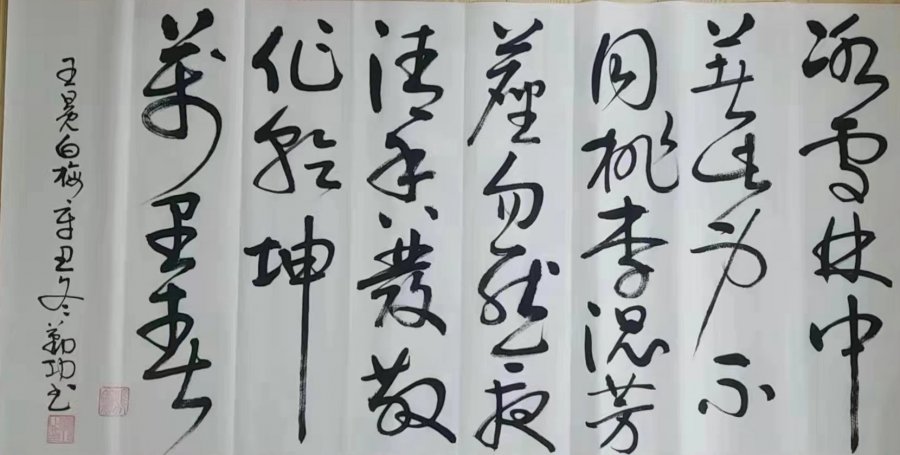 冰雪林中
著此身不
同桃李混芳
塵忽然一夜
清香發散
作乾坤
萬里春
王冕白梅辛丑冬勤功书